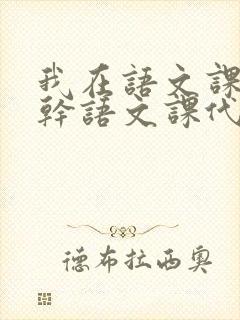 我在語文課
幹語文課代
德布拉西奧